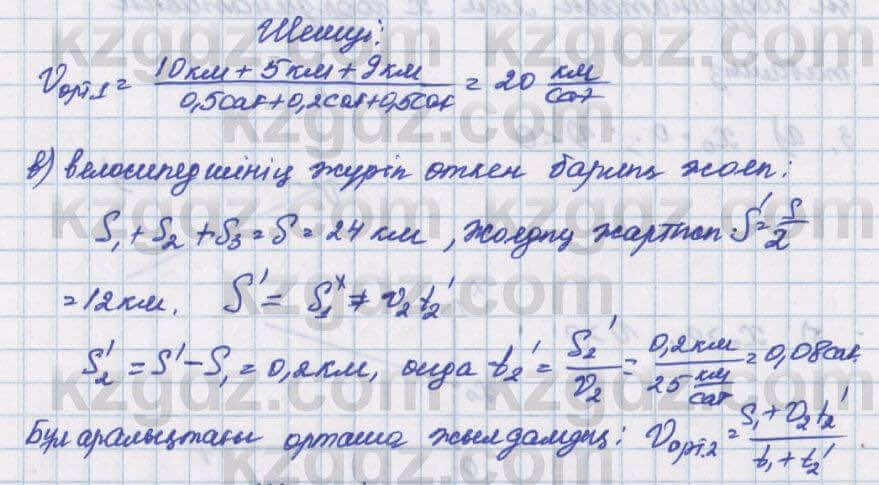 Шешуі:
Vорт.1 = (10км + 5км + 9км) / (0,5сағ + 0,2сағ + 0,5сағ) = 20 км/сағ
в) велосипедшінің жүріп өткен барлық жолы:
S₁ + S₂ + S₃ = S = 24 км, жолдың жартысы S' = S/2
= 12км. S' = S₁ˣ + v₂t₂'
S₂' = S' − S₁ = 0,2км, онда t₂' = S₂'/v₂ = 0,2км / 25 км/сағ = 0,08сағ.
Бұл аралықтағы орташа жылдамдық: Vорт.2 = (S₁ + v₂t₂') / (t₁ + t₂')
kzgdz.com